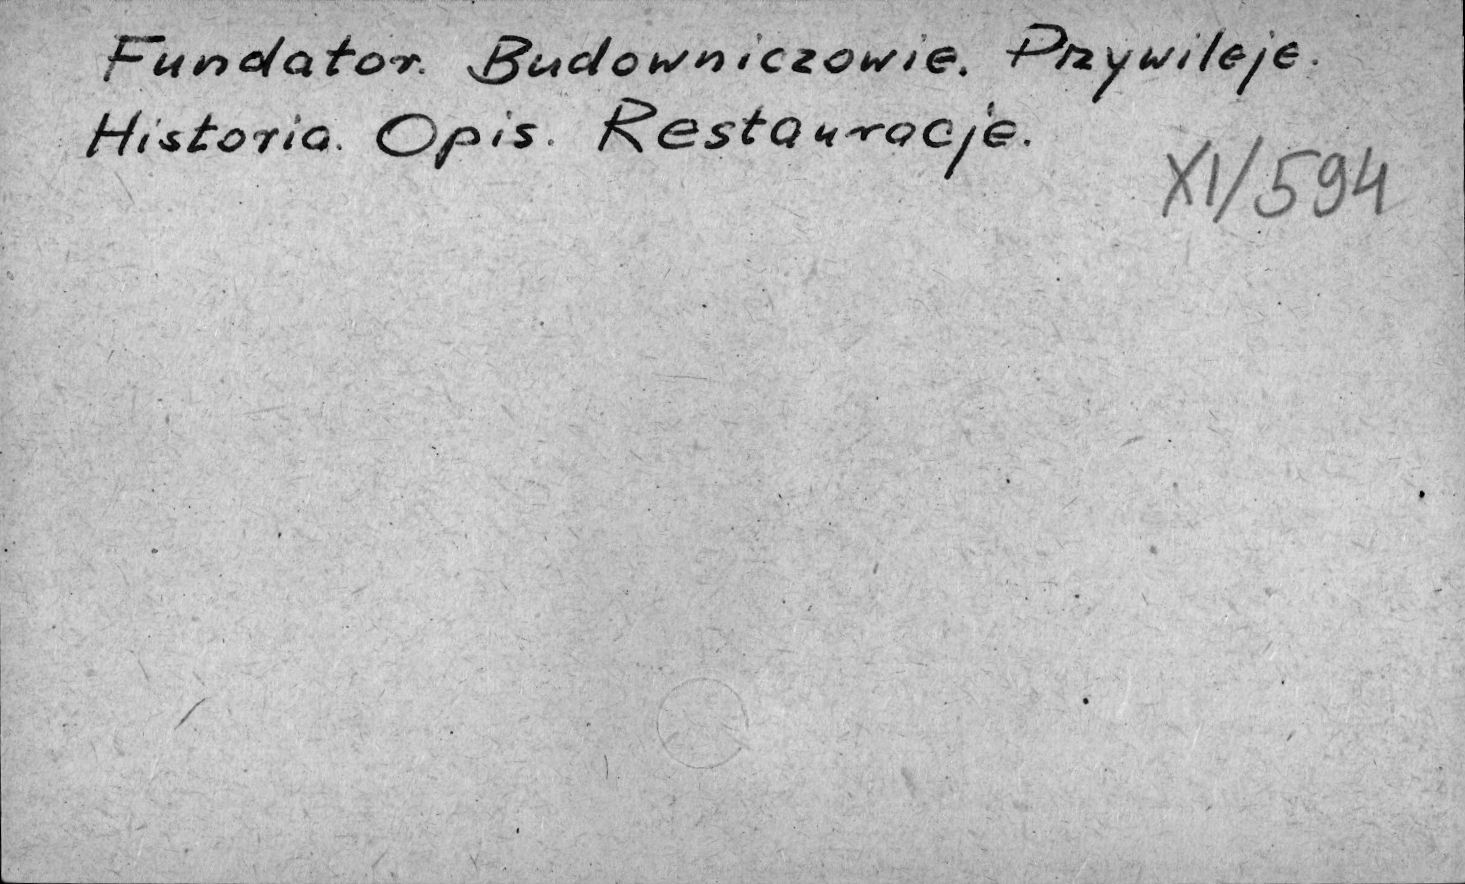 Fundator. Budowniczowie. Przywileje.
Historia. Opis. Restauracje.
XI/594